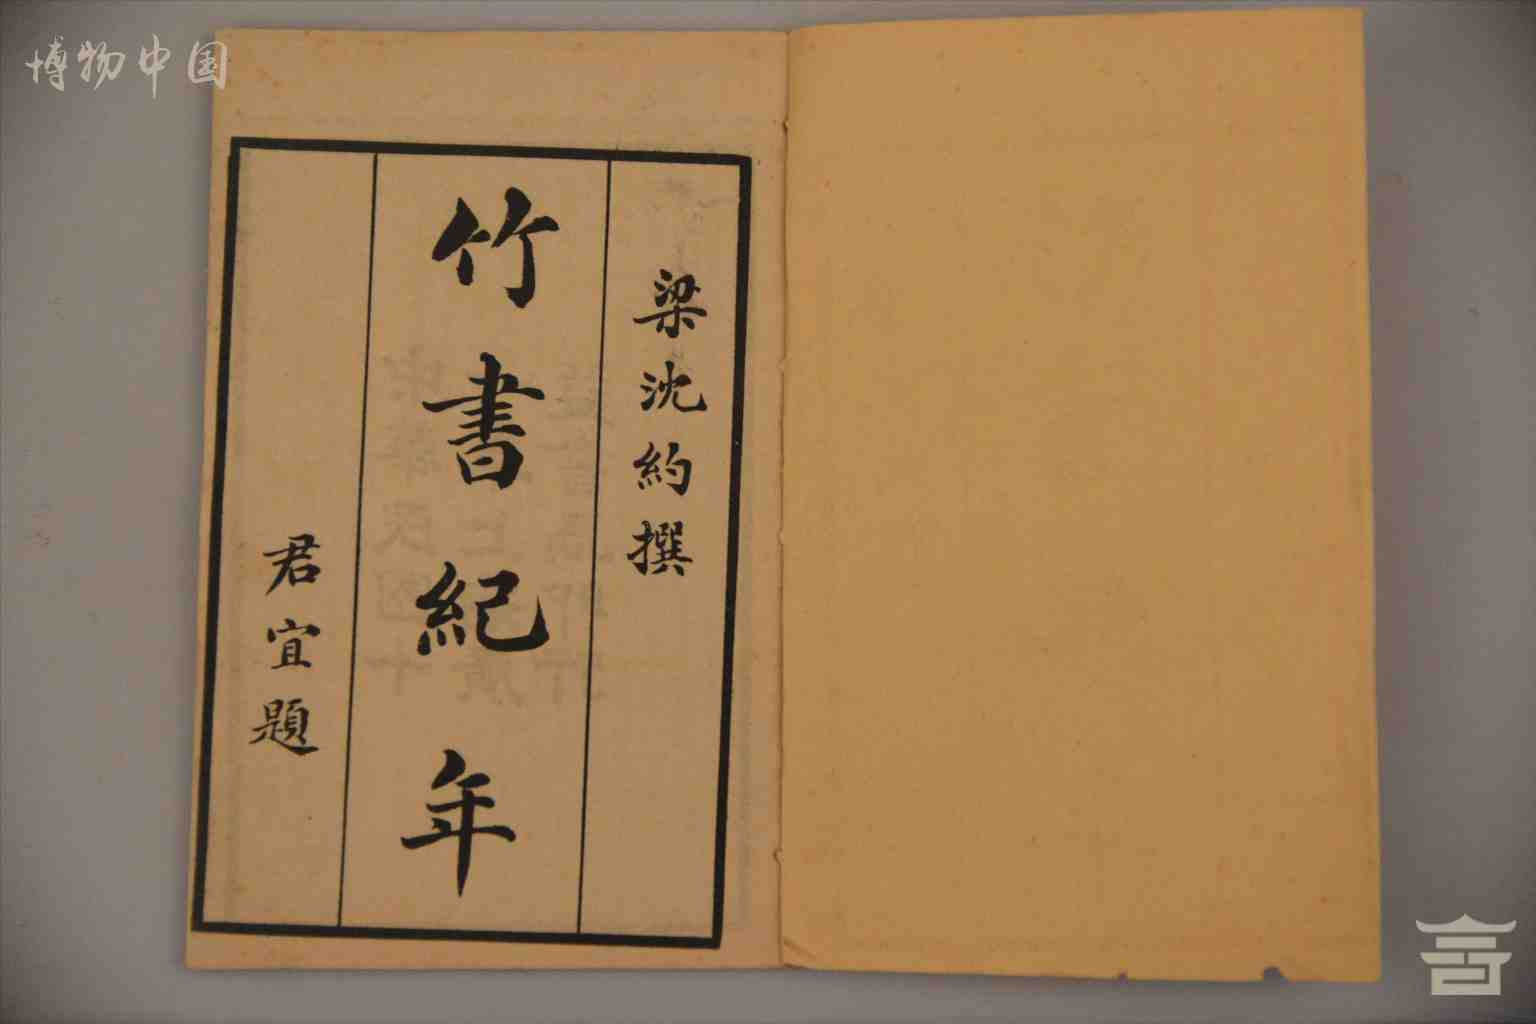 博物中国
梁沈約撰
竹書紀年
君宜題